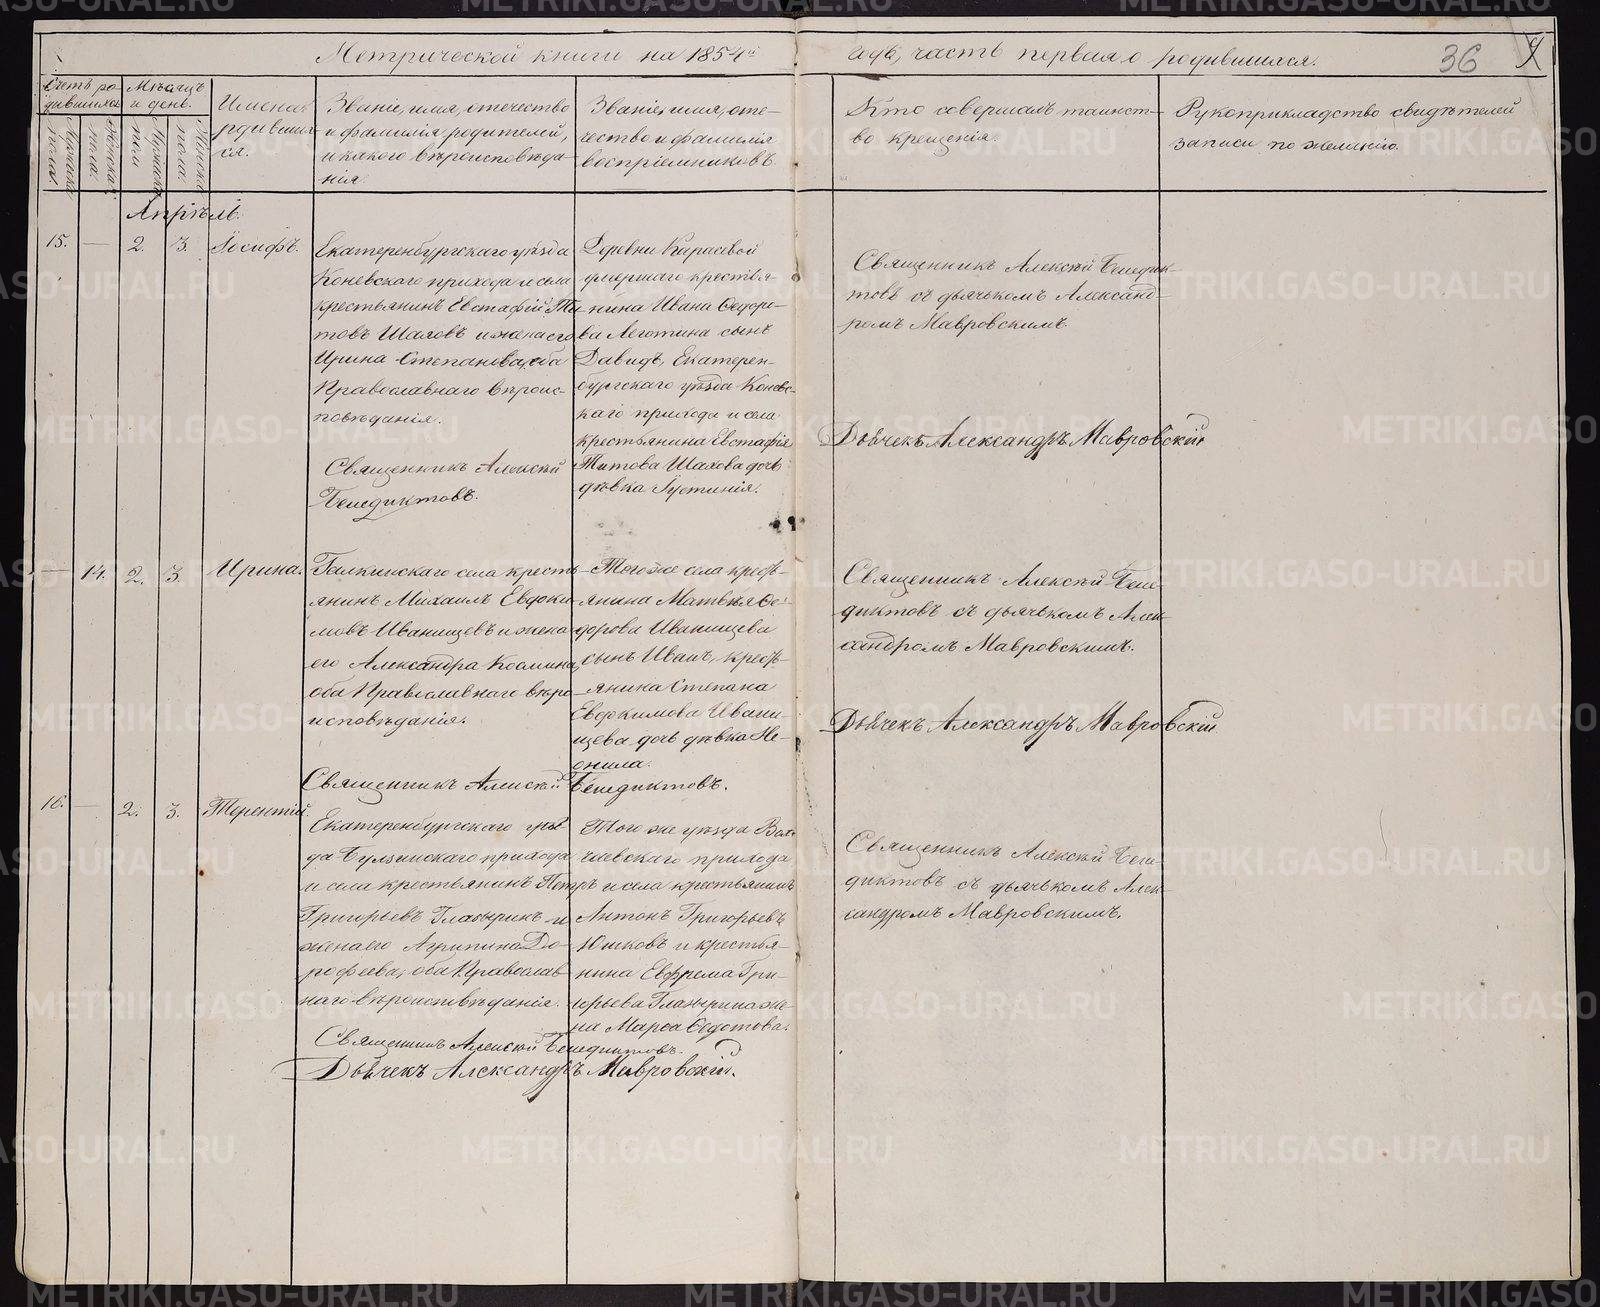 Метрической книги на 1854й годъ, часть первая о родившихся.
36
Счетъ ро-
дившихся
Мужска
пола.
Женска
пола.
Мѣсяцъ
и день.
Имена
родивших-
ся.
Званіе, имя, отечество
и фамилія родителей,
и какого вѣроисповѣда-
нія.
Званіе, имя, оте-
чество и фамилія
воспріемниковъ
Кто совершалъ таинст-
во крещенія.
Рукоприкладство свидѣтелей
записи по желанію.
Апрѣль.
15. — 2. 3. Іосифъ.
Екатеренбургскаго уѣзда
Коневскаго прихода и села
крестьянинъ Евстафій Ти-
товъ Шаховъ и жена его
Ирина Степанова, оба
Православнаго вѣроис-
повѣданія.
Священникъ Алексѣй
Бенедиктовъ.
Деревни Карасевой
умершаго крестья-
нина Ивана Ѳедоро-
ва Леготина сынъ
Давидъ, Екатерен-
бургскаго уѣзда Коневс-
каго прихода и села
крестьянина Евстафія
Титова Шахова дочь
дѣвка Іустинія.
Священникъ Алексѣй Бенедик-
товъ съ дьячькомъ Александ-
ромъ Мавровскимъ.
Дьячекъ Александръ Мавровскій
— 14. 2. 3. Ирина.
Галкинскаго села кресть-
янинъ Михаилъ Евдоки-
мовъ Иванищевъ и жена
его Александра Космина,
оба Православнаго вѣро-
исповѣданія.
Священникъ Алексѣй Бенедиктовъ.
Того же села кресть-
янина Матвѣя Ѳе-
дорова Иванищева
сынъ Иванъ, кресть-
янина Степана
Евдокимова Ивани-
щева дочь дѣвка Не-
онила.
Священникъ Алексѣй Бене-
диктовъ съ дьячькомъ Алек-
сандромъ Мавровскимъ.
Дьячекъ Александръ Мавровскій
16. — 2. 3. Терентій.
Екатеренбургскаго уѣз-
да Булзинскаго прихода
и села крестьянинъ Петръ
Григорьевъ Глазыринъ и
жена его Агрипина До-
рофеева, оба Православ-
наго вѣроисповѣданія.
Священникъ Алексѣй Бенедиктовъ.
Дьячекъ Александръ Мавровскій.
Того же уѣзда
прихода
и села крестьянинъ
Антонъ Григорьевъ
Юшковъ и крестья-
нина Ефрема Гри-
горьева Глазырина же-
на Марѳа Ѳедотова.
Священникъ Алексѣй Бене-
диктовъ съ дьячькомъ Алек-
сандромъ Мавровскимъ.
METRIKI.GASO-URAL.RU